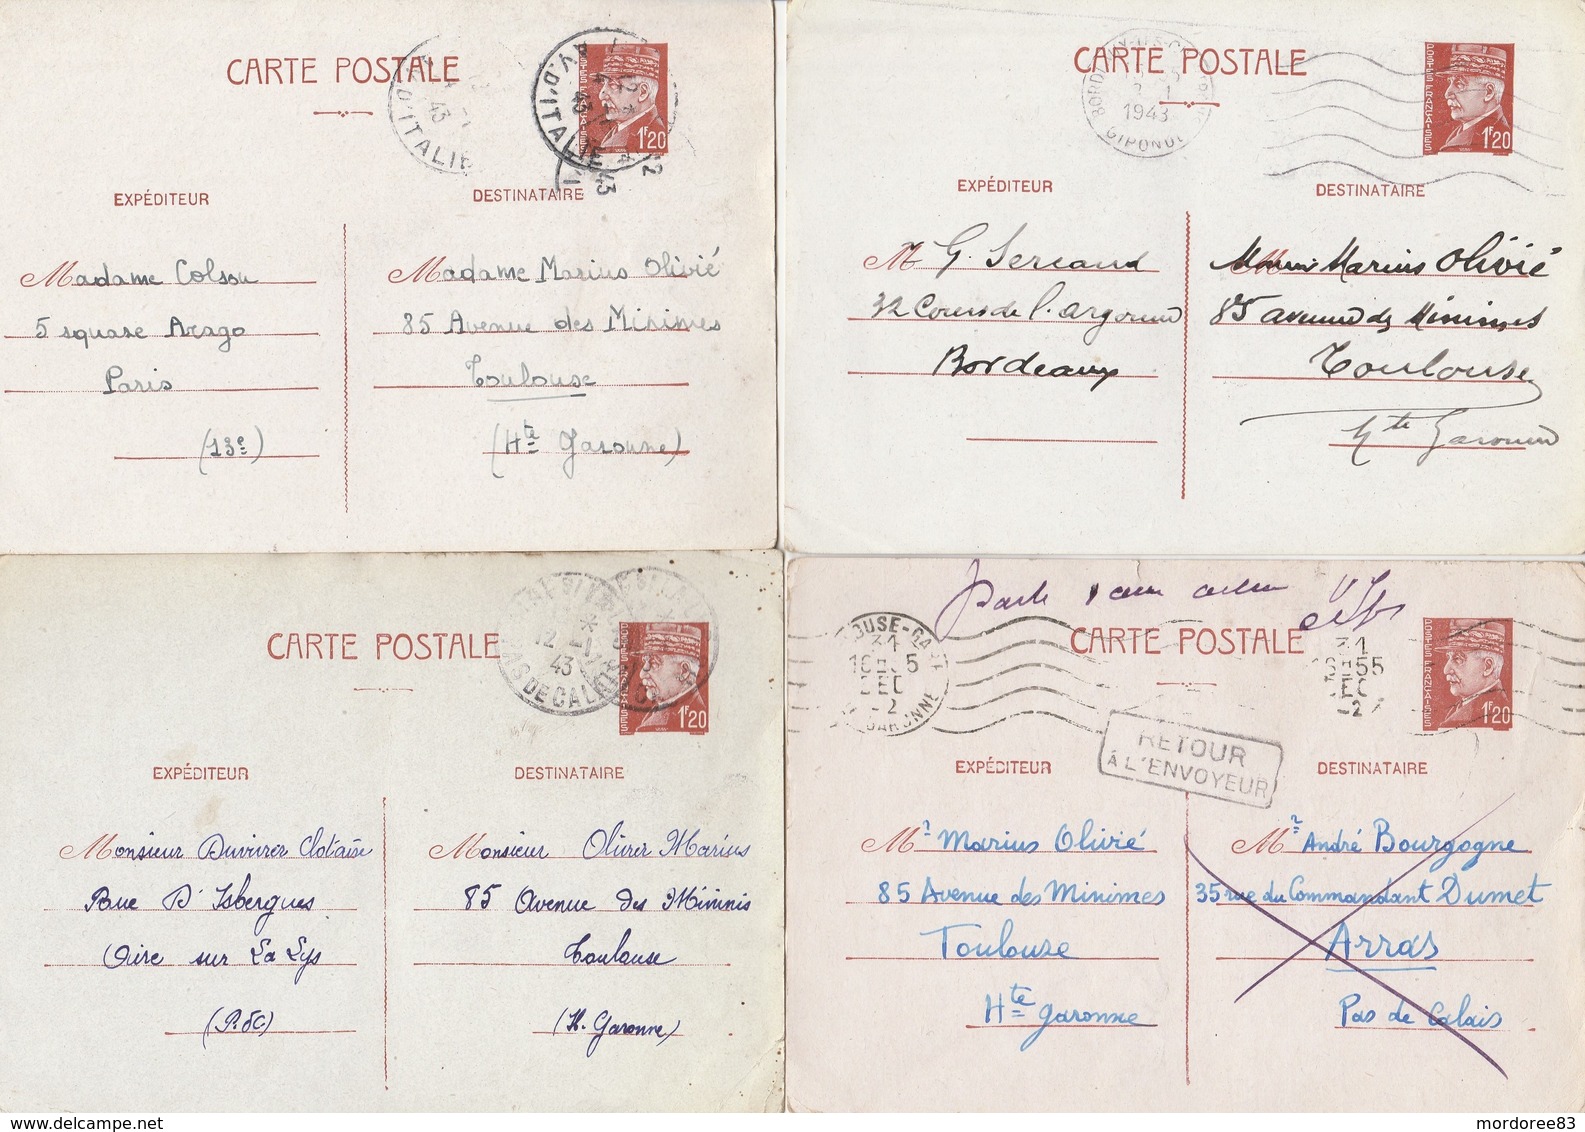 CARTE POSTALE
AV. D'ITALIE
43
POSTES FRANÇAISES
1F20
EXPÉDITEUR
DESTINATAIRE
Madame Colson
5 square Arago
Paris
(13e)
Madame Marius Olivié
85 Avenue des Minimes
Toulouse
(Hte Garonne)
CARTE POSTALE
1943
GIRONDE
POSTES FRANÇAISES
1F20
EXPÉDITEUR
DESTINATAIRE
M G.
32 Cours de l'argonne
Bordeaux
Marius Olivié
85 avenue des Minimes
Toulouse
Hte Garonne
CARTE POSTALE
12
43
PAS DE CALAIS
1F20
EXPÉDITEUR
DESTINATAIRE
Monsieur Duvivier Clotaire
Rue D'Isbergues
Aire sur La Lys
(P. de C)
Monsieur Olivier Marius
85 Avenue des Minimis
Toulouse
(H. Garonne)
CARTE POSTALE
GARONNE
POSTES FRANÇAISES
1F20
RETOUR
À L'ENVOYEUR
EXPÉDITEUR
DESTINATAIRE
Mr Marius Olivié
85 Avenue des Minimes
Toulouse
Hte Garonne
Mr André Bourgogne
35 rue du Commandant Dumet
Arras
Pas de Calais
mordoree83